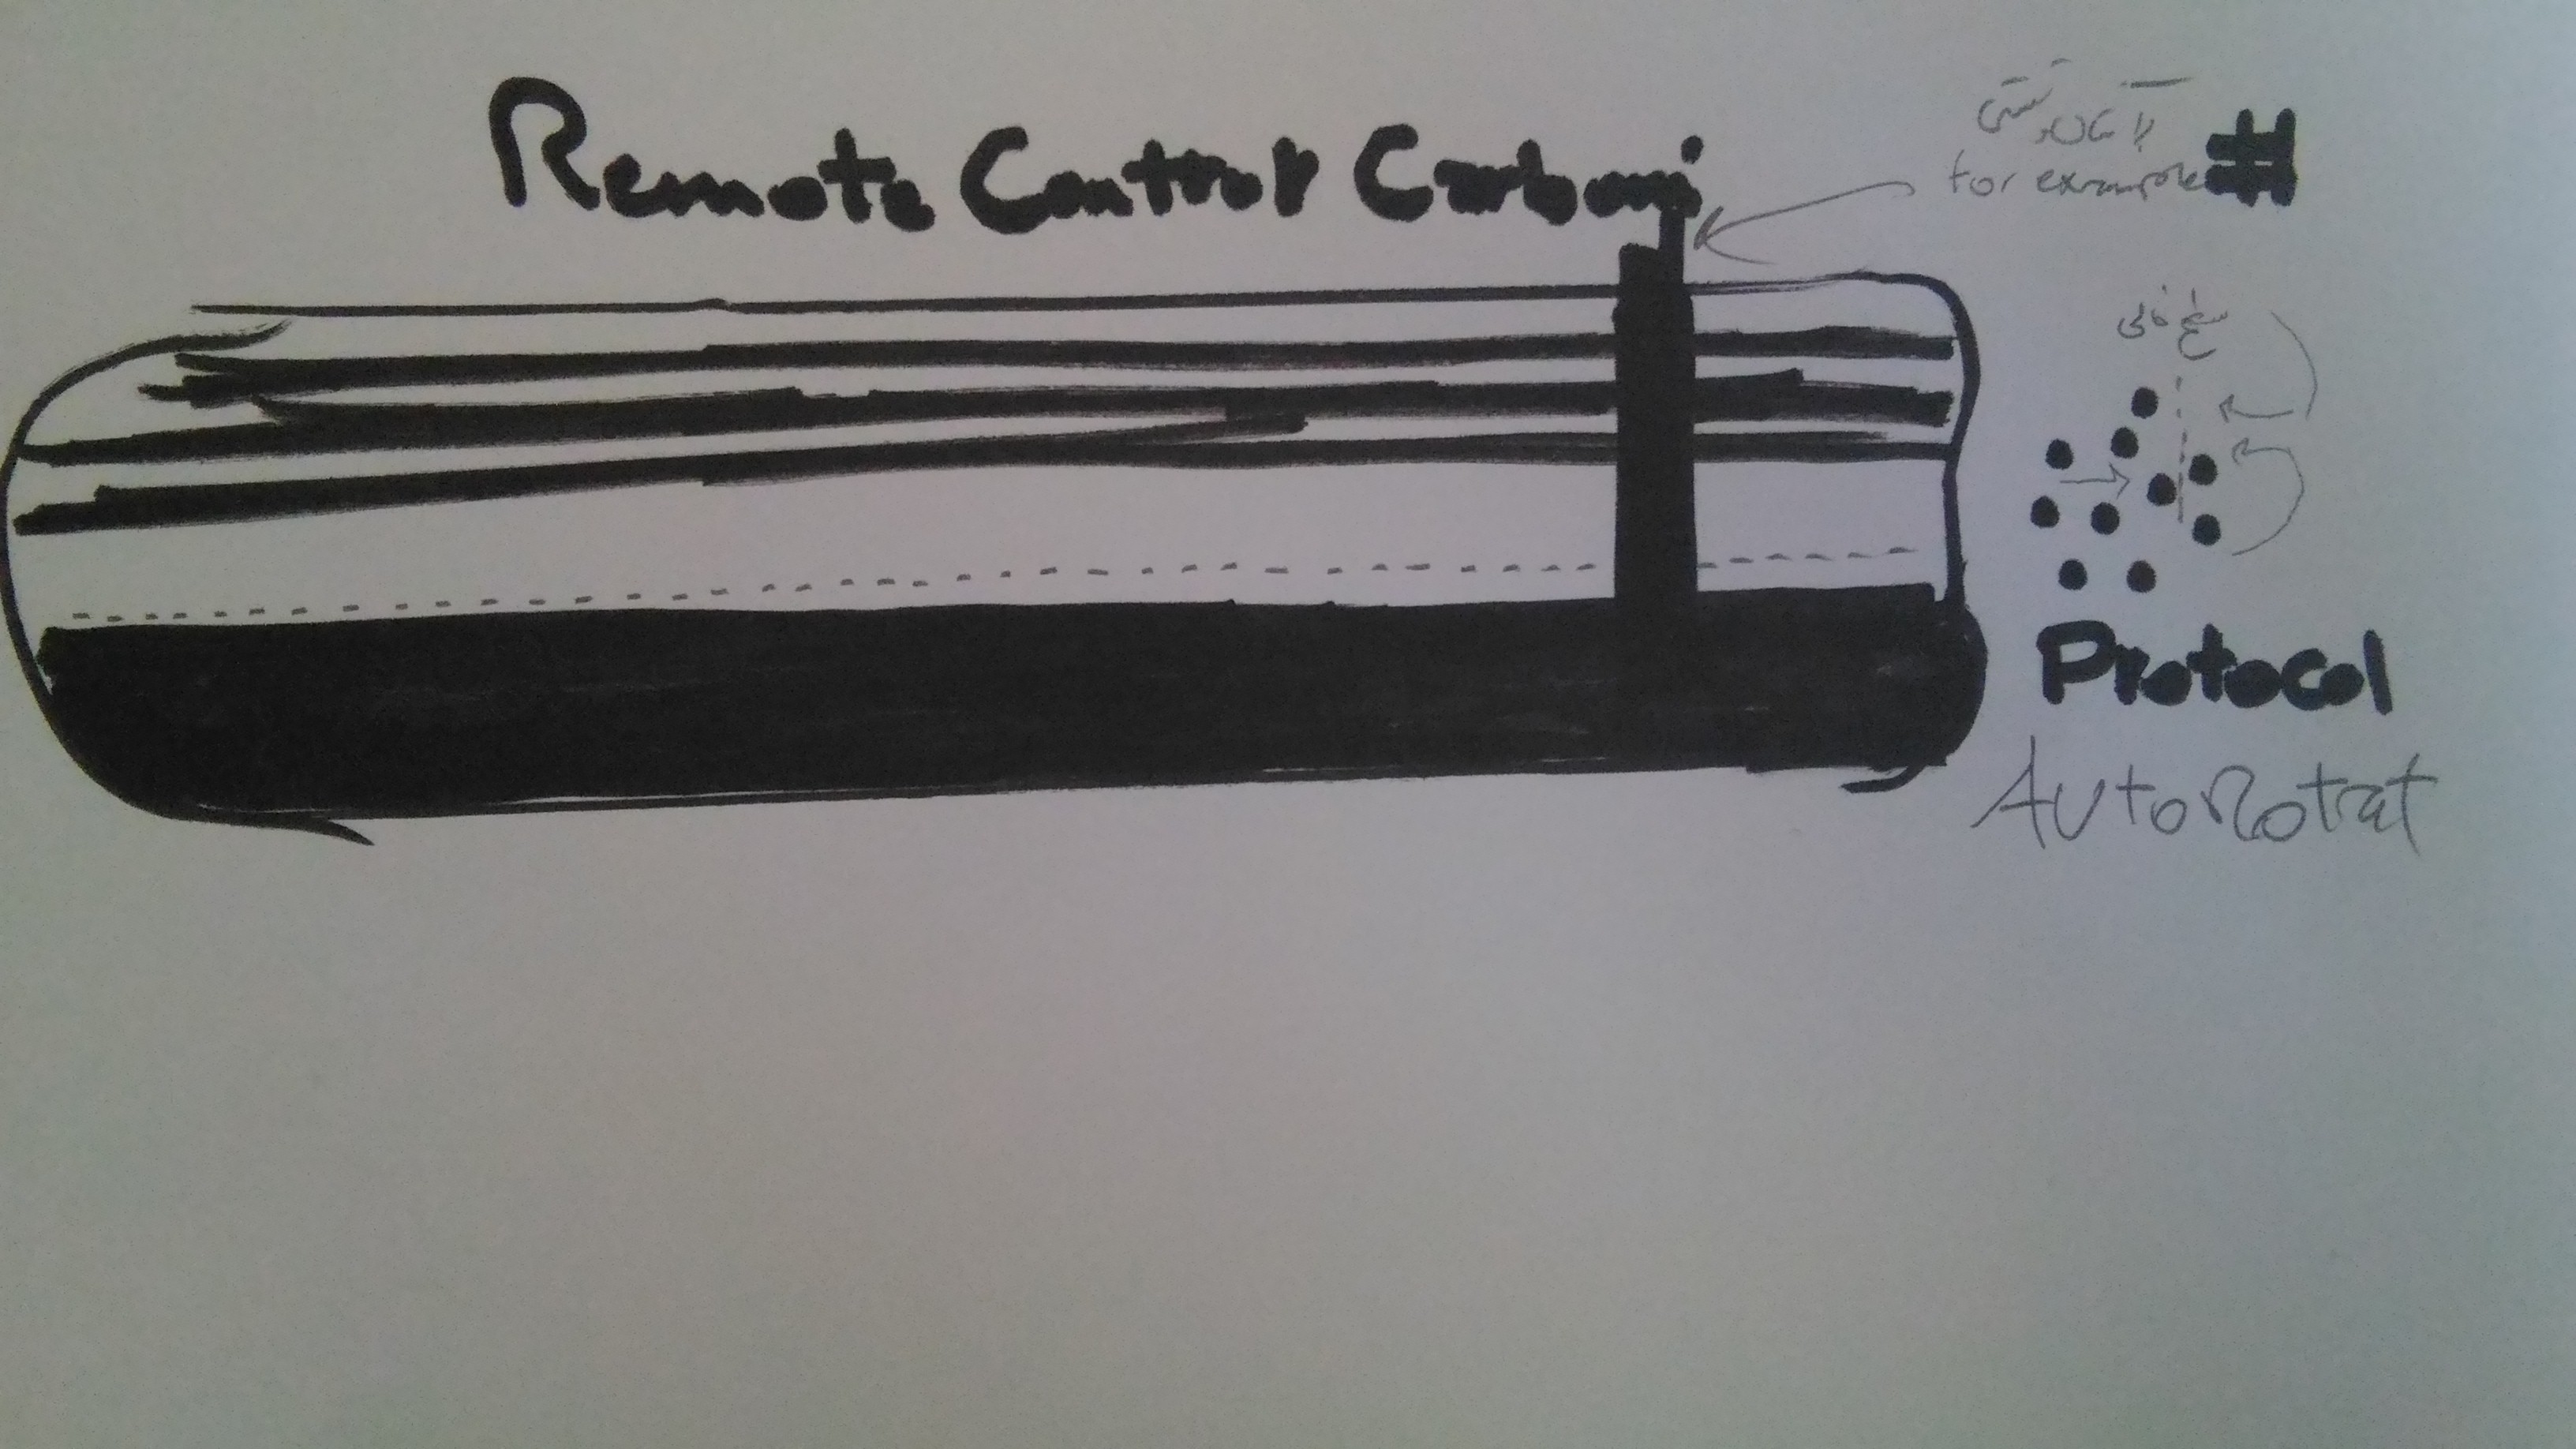 Remote Control Carboni
for example #
سطح خالی
Protocol
AutoRotrat